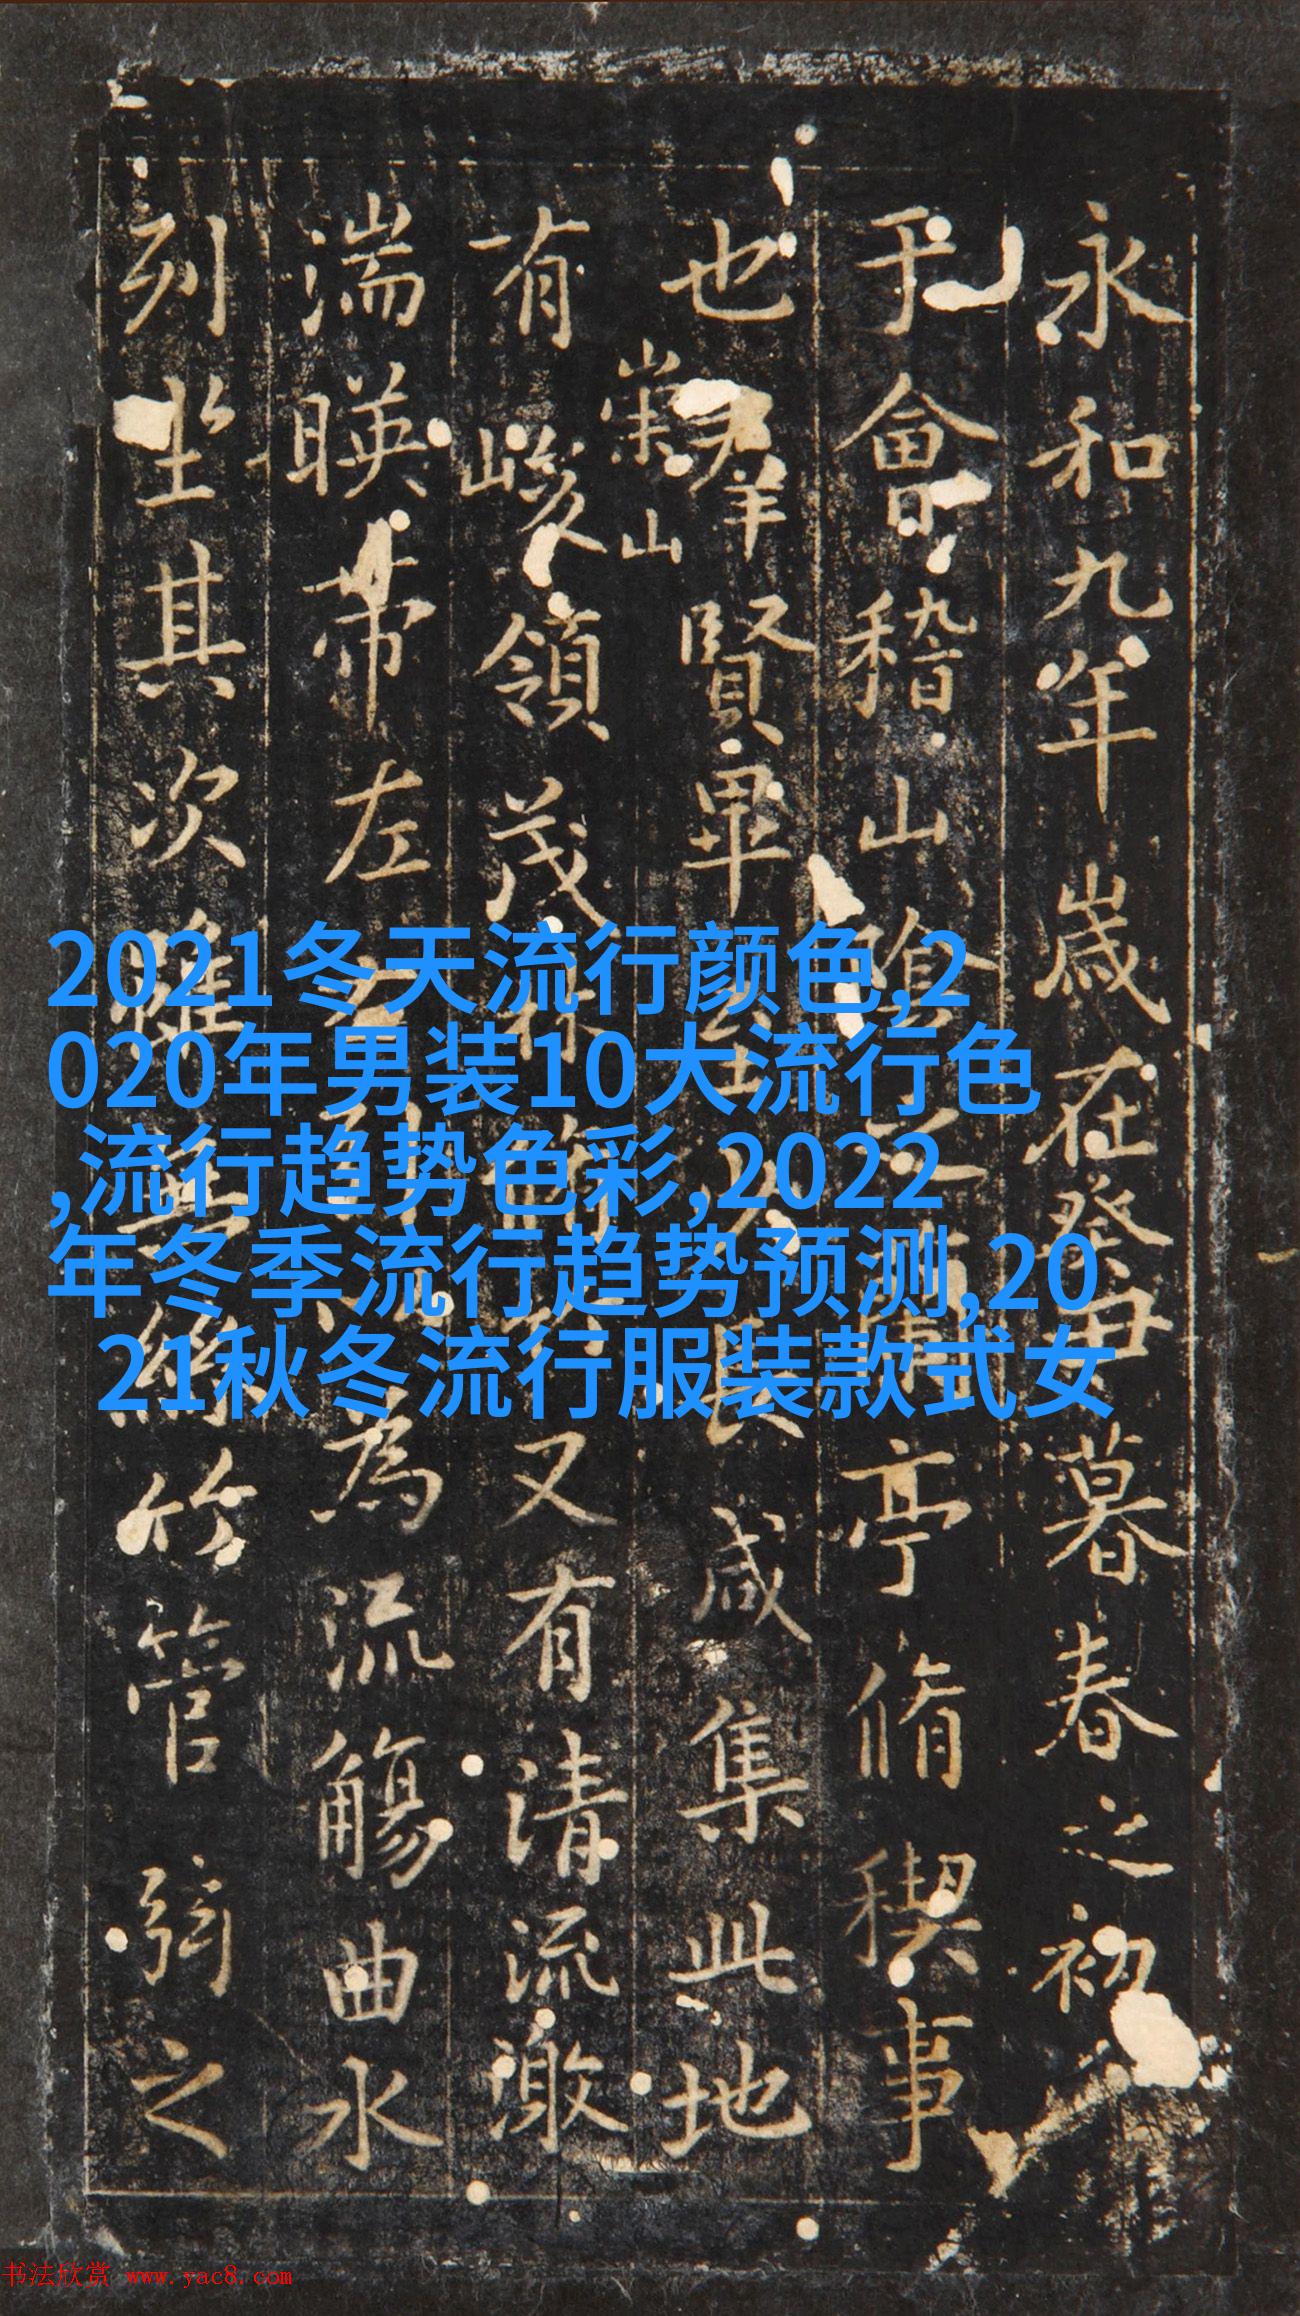 永和九年歲在癸丑暮春之初
于會稽山陰之蘭亭脩稧事
也羣賢畢至少長咸集此地
崇山
有峻領茂林脩竹又有清流激
湍暎帶左右引以為流觴曲水
列坐其次雖無絲竹管弦之
2021冬天流行颜色,2
020年男装10大流行色
,流行趋势色彩,2022
年冬季流行趋势预测,20
21秋冬流行服装款式女
书法欣赏 www.yac8.com